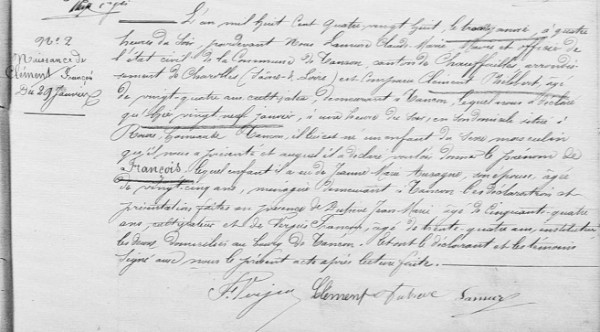 N° 2
Naissance de
Clément François
Du 29 Janvier
L'an mil huit cent quatre vingt huit, le trente janvier, à quatre
heures du soir, pardevant Nous Claude Marie, Maire et officier de
l'état civil de la Commune de Tancon, canton de Chauffailles, arrondis-
sement de Charolles (Saône-&-Loire) est comparu Clément Philibert, âgé
de vingt-quatre ans cultivateur, demeurant à Tancon, lequel nous a déclaré
qu'hier vingt-neuf janvier, à une heure du soir, en son domicile situé à
commune de Tancon, il lui est né un enfant du sexe masculin
qu'il nous a présenté et auquel il a déclaré vouloir donner le prénom de
François, lequel enfant il a eu de Jeanne Marie son épouse, âgée
de vingt-cinq ans, ménagère demeurant à Tancon. Les déclaration et
présentation faites en présence de Jean Marie, âgé de cinquante-quatre
ans, cultivateur et de âgé de trente-quatre ans, instituteur,
les deux domiciliés au bourg de Tancon. Et ont le déclarant et les témoins
signé avec nous le présent acte après lecture faite.
Clément